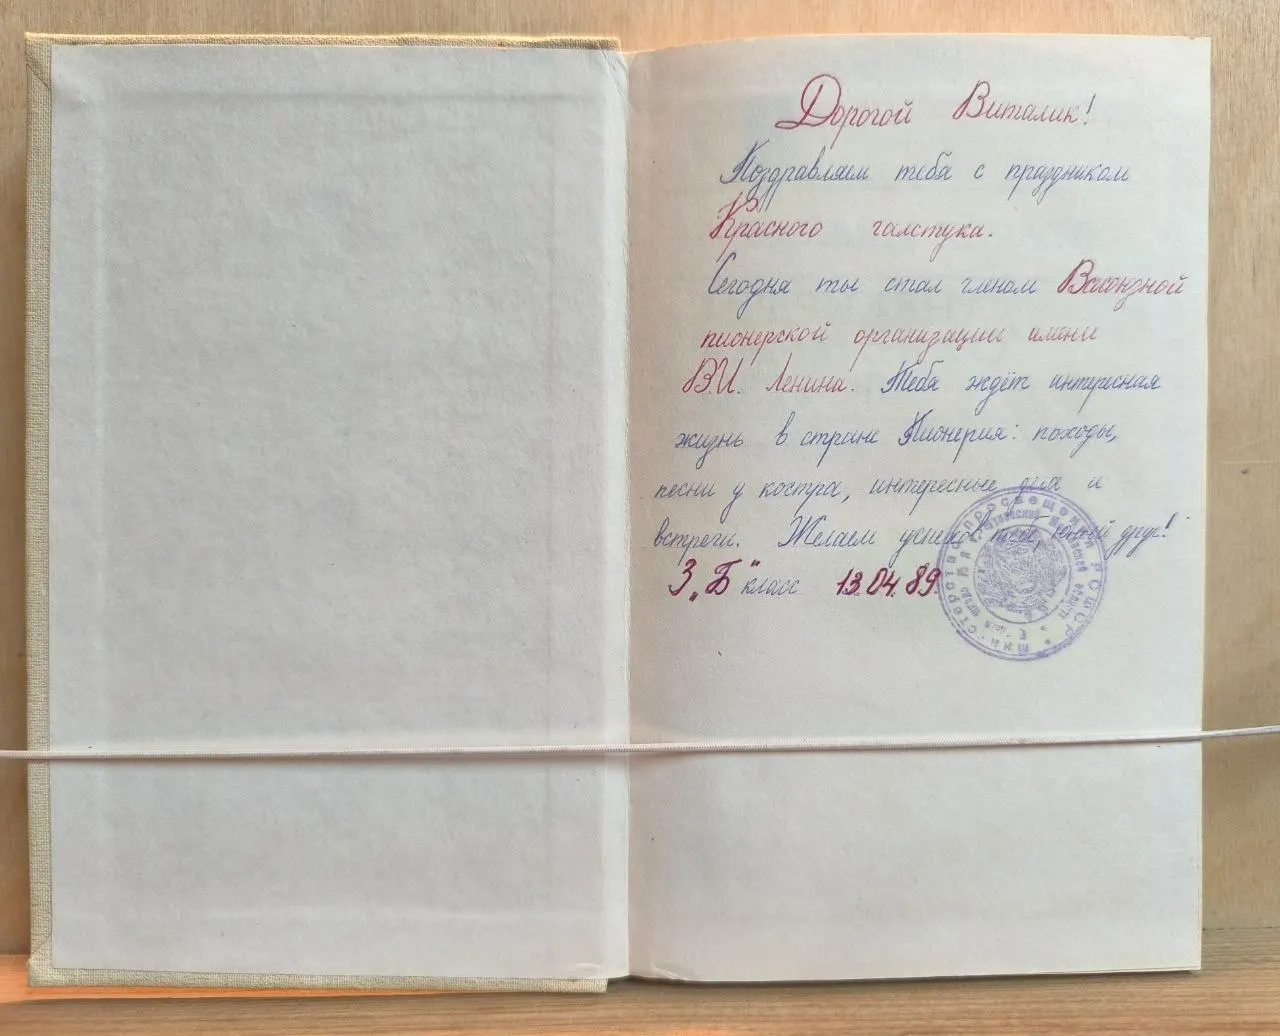 Дорогой Виталик!
Поздравляем тебя с праздником
Красного галстука.
Сегодня ты стал членом Всесоюзной
пионерской организации имени
В.И. Ленина. Тебя ждёт интересная
жизнь в стране Пионерия: походы,
песни у костра, интересные дела и
встречи. Желаем успехов тебе, юный друг!
3 „Б" класс 13.04.89.
Министерство просвещения РСФСР